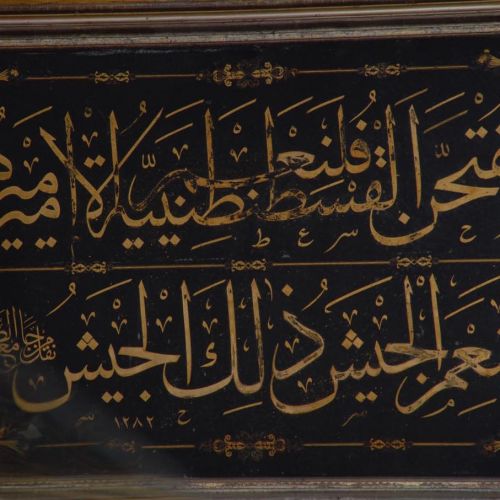 فتحن القسطنطينية فلنعم الامير امير
لنعم الجيش ذلك الجيش
١٢٨٢